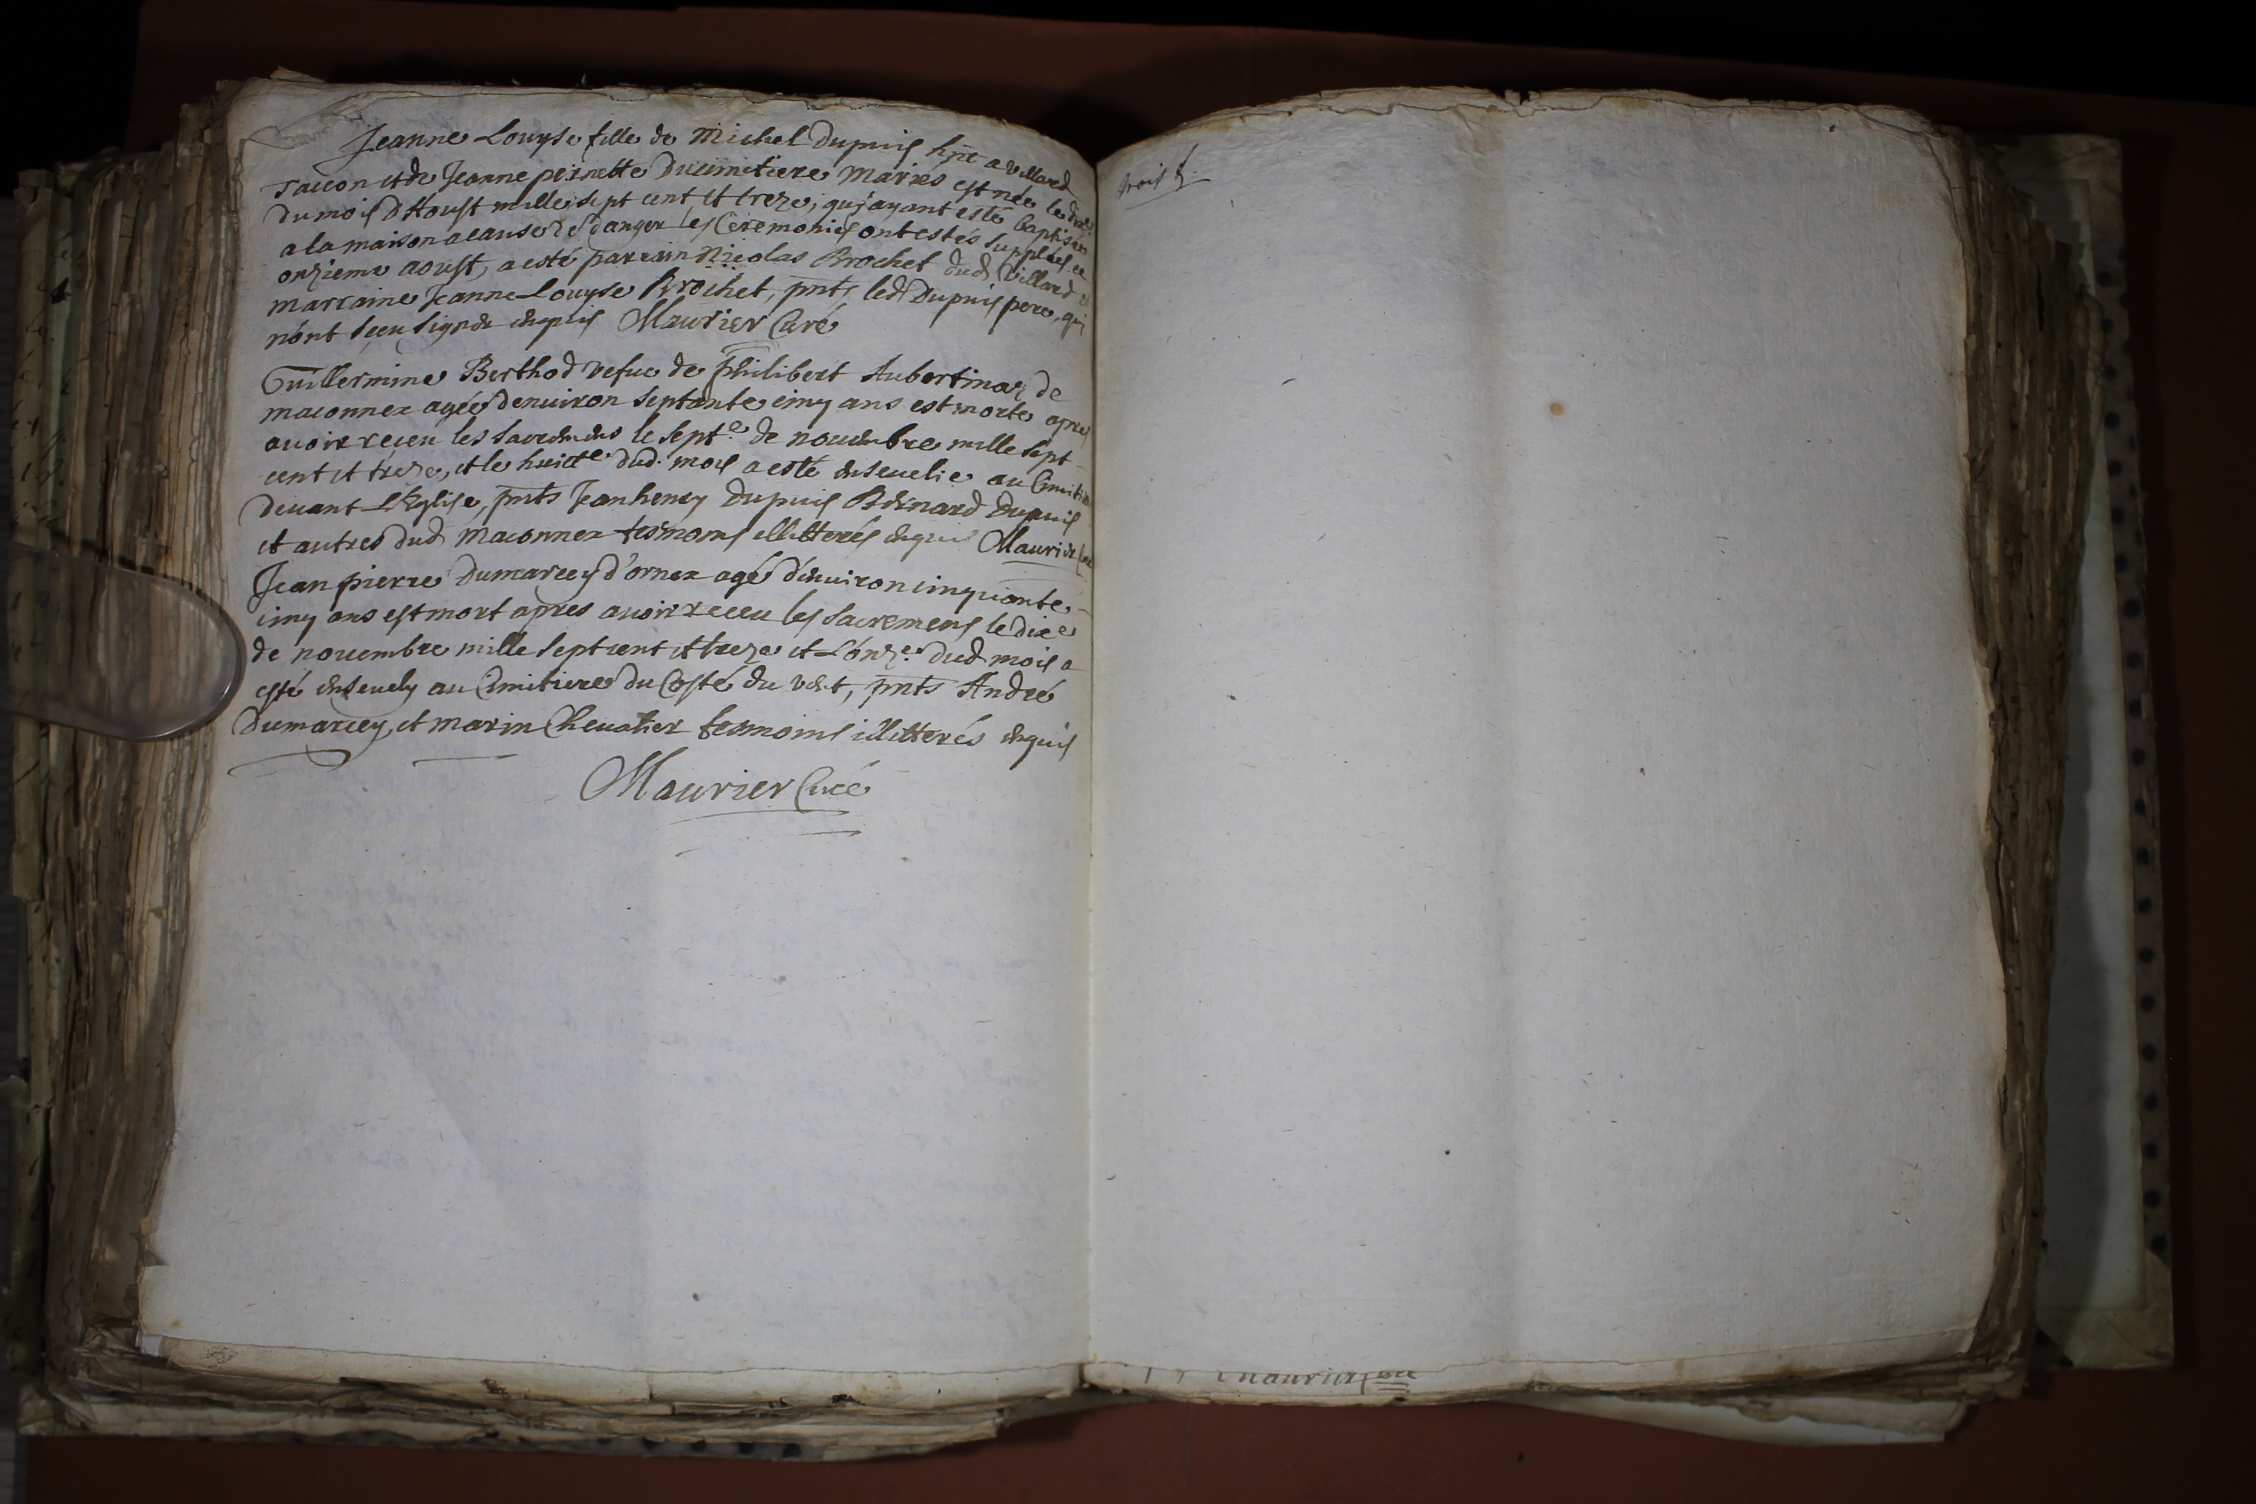 Jeanne Louyse fille de Michel Dupuis hñt a villard
saccon et de Jeanne pernette Ducimitiere mariés est née le
du mois D'Aoust mille sept cent et treze, qui ayant esté baptisée
a la maison a cause de danger les Ceremonies ont estés supplées ce
onzieme aoust, a esté parrain Nicolas Brochet dud villard et
marraine Jeanne Louyse Brochet, pnts led Dupuis pere, qui
n'ont sceu signer enquis Maurier Curé
Guillermine Berthod vefue de philibert Aubertinaz de
maconnex agée denuiron septante cinq ans est morte apres
auoir receu les sacremens le sept.e de nouembre mille sept
cent et treze, et le huict.e dud. mois a esté enseuelie au Cimitiere
deuant L'Eglise, pnts Jean henry Dupuis Bernard Dupuis
et autres dud maconnex tesmoins illitterés enquis Maurier Curé
Jean pierre Dumarcey d'ornex agé d'enuiron cinquante
cinq ans est mort apres auoir receu les sacremens le dix.e
de nouembre mille sept cent et treze et L'onz.e dud mois a
esté enseuely au Cimitiere du Costé du vent, pnts André
Dumarcey, et marin Cheualier tesmoins illitterés enquis
Maurier Curé
trois f.
Maurier Curé